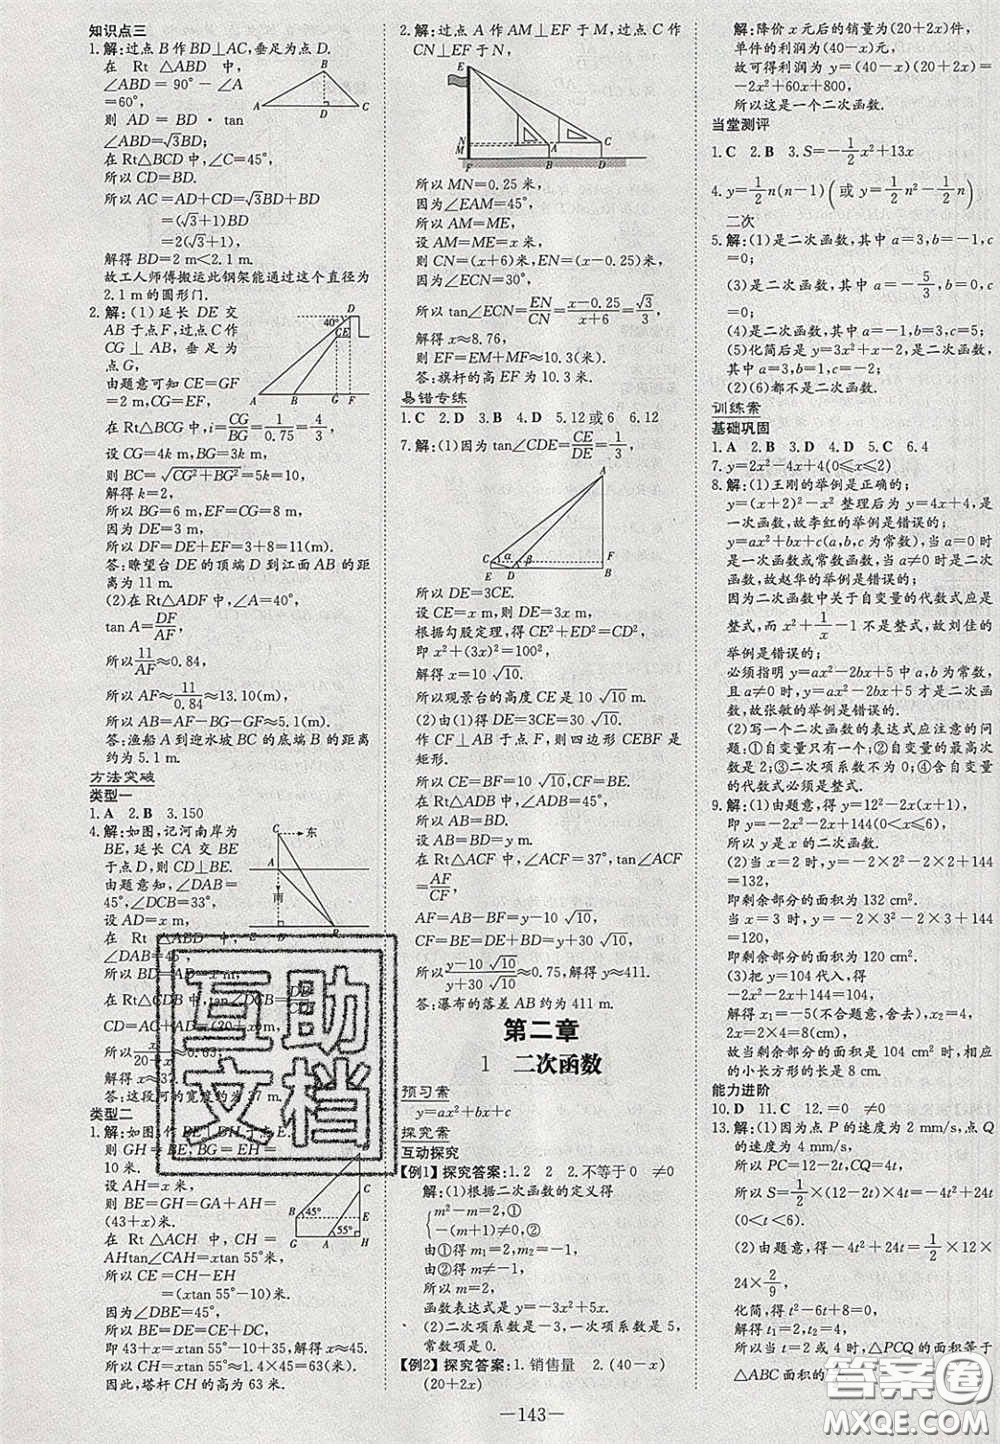 知识点三
1.解:过点B作BD⊥AC,垂足为点D.
在 Rt △ABD 中,
∠ABD = 90° - ∠A
=60°,
则 AD = BD · tan
∠ABD=√3BD;
在Rt△BCD中,∠C=45°,
所以CD=BD.
所以AC=AD+CD=√3BD+BD
=(√3+1)BD
=2(√3+1),
解得BD=2 m<2.1 m.
故工人师傅搬运此钢架能通过这个直径为
2.1 m的圆形门.
2.解:(1)延长 DE 交
AB于点F,过点C作
CG ⊥ AB, 垂足为
点G,
由题意可知CE=GF
=2 m,CG=EF,
在Rt△BCG中,i=CG/BG=1/0.75=4/3,
设CG=4k m,BG=3k m,
则 BC=√(CG²+BG²)=5k=10,
解得k=2,
所以BG=6 m,EF=CG=8 m,
因为DE=3 m,
所以DF=DE+EF=3+8=11(m).
答:瞭望台DE的顶端D到江面AB的距
离为11 m.
(2)在Rt△ADF中,∠A=40°,
tan A=DF/AF,
所以11/AF≈0.84,
所以AF≈11/0.84≈13.10(m),
所以AB=AF-BG-GF≈5.1(m).
答:渔船A到迎水坡BC的底端B的距离
约为5.1 m.
方法突破
类型一
1.A 2.B 3.150
4.解:如图,记河南岸为
BE,延长 CA 交 BE
于点D,则CD⊥BE.
由题意知,∠DAB=
45°,∠DCB=33°,
设AD=x m,
在 Rt △ABD 中,
∠DAB=45°,
所以BD=AD=x m,
在Rt△CDB中,tan∠DCB=
CD=AC+AD=(20+x)m,
所以 ≈0.65,
解得x≈37.
答:这段河的宽度约为37 m.
类型二
1.解:如图,作BE⊥DH于点E.
则GH=BE,BG=EH=
10米,
设AH=x米,
则BE=GH=GA+AH=
(43+x)米.
在 Rt △ACH 中, CH =
AHtan∠CAH=xtan 55°米,
所以CE=CH-EH=
(xtan 55°-10)米.
因为∠DBE=45°,
所以BE=DE=CE+DC,
即43+x=xtan 55°-10+35,
解得x≈45.
所以CH=xtan 55°≈1.4×45=63(米).
因此,塔杆CH的高为63米.
2.解:过点A作AM⊥EF于M,过点C作
CN⊥EF于N,
所以MN=0.25米,
因为∠EAM=45°,
所以AM=ME,
设AM=ME=x米,
则CN=(x+6)米,EN=(x-0.25)米,
因为∠ECN=30°,
所以 tan∠ECN=EN/CN=(x-0.25)/(x+6)=√3/3,
解得x≈8.76,
则EF=EM+MF≈10.3米.
答:旗杆的高EF为10.3米.
易错专练
1.C 2.D 3.B 4.D 5.12或6 6.12
7.解:(1)因为 tan∠CDE=CE/DE=1/3,
所以DE=3CE.
设CE=x m,则DE=3x m,
根据勾股定理,得CE²+DE²=CD²,
即x²+(3x)²=100²,
解得x=10√10.
所以观景台的高度CE是10√10米.
(2)由(1)得DE=3CE=30√10米,
作CF⊥AB于点F,则四边形CEBF是
矩形.
所以CE=BF=10√10,CF=BE.
在Rt△ADB中,∠ADB=45°,
所以AB=BD.
设AB=BD=y米,
在Rt△ACF中,∠ACF=37°,tan∠ACF
=AF/CF,
AF=AB-BF=y-10√10,
CF=BE=DB+DE=y+30√10,
所以(y-10√10)/(y+30√10)≈0.75,解得y≈411.
答:瀑布的落差AB约为411 m.
第二章
1 二次函数
预习案
y=ax²+bx+c
探究案
互动探究
【例1】探究答案:1.2 2 2.不等于0 ≠0
解:(1)根据二次函数的定义得
m²-m=2,①
-(m+1)≠0,②
由①得m₁=2,m₂=-1,
由②得m≠-1,
所以m=2,
函数表达式是y=-3x²+5x.
(2)二次项系数是-3,一次项系数是5,
常数项是0.
【例2】探究答案:1.销售量 2.(40-x)
(20+2x)
解:降价x元后的销量为(20+2x)元,
单件的利润为(40-x)元,
故可得利润为y=(40-x)(20+2x)=
-2x²+60x+800,
所以这是一个二次函数.
当堂测评
1.C 2.B 3.S=-1/2x²+13x
4.y=1/2n(n-1)(或y=1/2n²-1/2n)
二次
5.解:(1)是二次函数,其中a=3,b=-1,c
=0;
(3)是二次函数,其中a=-5/3,b=0,c
=0;
(4)是二次函数,其中a=-1,b=3,c=5;
(5)化简后是y=3x²+x-2,是二次函数,
其中a=3,b=1,c=-2;
(2)(6)都不是二次函数.
训练案
基础巩固
1.A 2.B 3.D 4.D 5.C 6.4
7.y=2x²-4x+4(0≤x≤2)
8.解:(1)王刚的举例是正确的;
y=(x+2)²-x²整理后为y=4x+4,是
一次函数,故李红的举例是错误的;
y=ax²+bx+c(a,b,c为常数),当a=0时
是一次函数或常数函数,当a≠0时是二次
函数,故赵华的举例是错误的;
因为二次函数中关于自变量的代数式应是
整式,而x²+1/x-1不是整式,故刘佳的
举例是错误的;
必须指明y=ax²-2x+5中a,b为常数,
且a≠0时y=ax²-2x+5才是二次函
数,故张敏的举例是错误的.
(2)写一个二次函数的表达式应注意的问
题:①自变量只有一个;②自变量的最高次
数是2;③二次项的系数不为0;④含自变量
的代数式必须是整式.
9.解:(1)由题意,得y=12²-2x(x+1),
即y=-2x²-2x+144(0<x≤6).
所以y是x的二次函数.
(2)当x=2时,y=-2×2²-2×2+144
=132,
即剩余部分的面积为132 cm².
当x=3时,y=-2×3²-2×3+144
=120,
即剩余部分的面积为120 cm².
(3)把y=104代入,得
-2x²-2x+144=104,
解得x₁=-5(不合题意,舍去),x₂=4,
2x=8(cm).
故当剩余部分的面积为104 cm²时,裁去
的小长方形的长是8 cm.
能力进阶
10.D 11.C 12.=0 ≠0
13.解:(1)因为点P的速度为2 mm/s,点Q
的速度为4 mm/s,
所以PC=12-2t,CQ=4t,
所以S=1/2×(12-2t)×4t=-4t²+24t
(0<t<6).
(2)由题意,得-4t²+24t=1/2×12×
24×2/9,
化简,得t²-6t+8=0,
解得t₁=2,t₂=4.
所以当t=2或4时,△PCQ的面积等于
△ABC面积的
—143—
互助
文档
答案圈
MXQE.COM